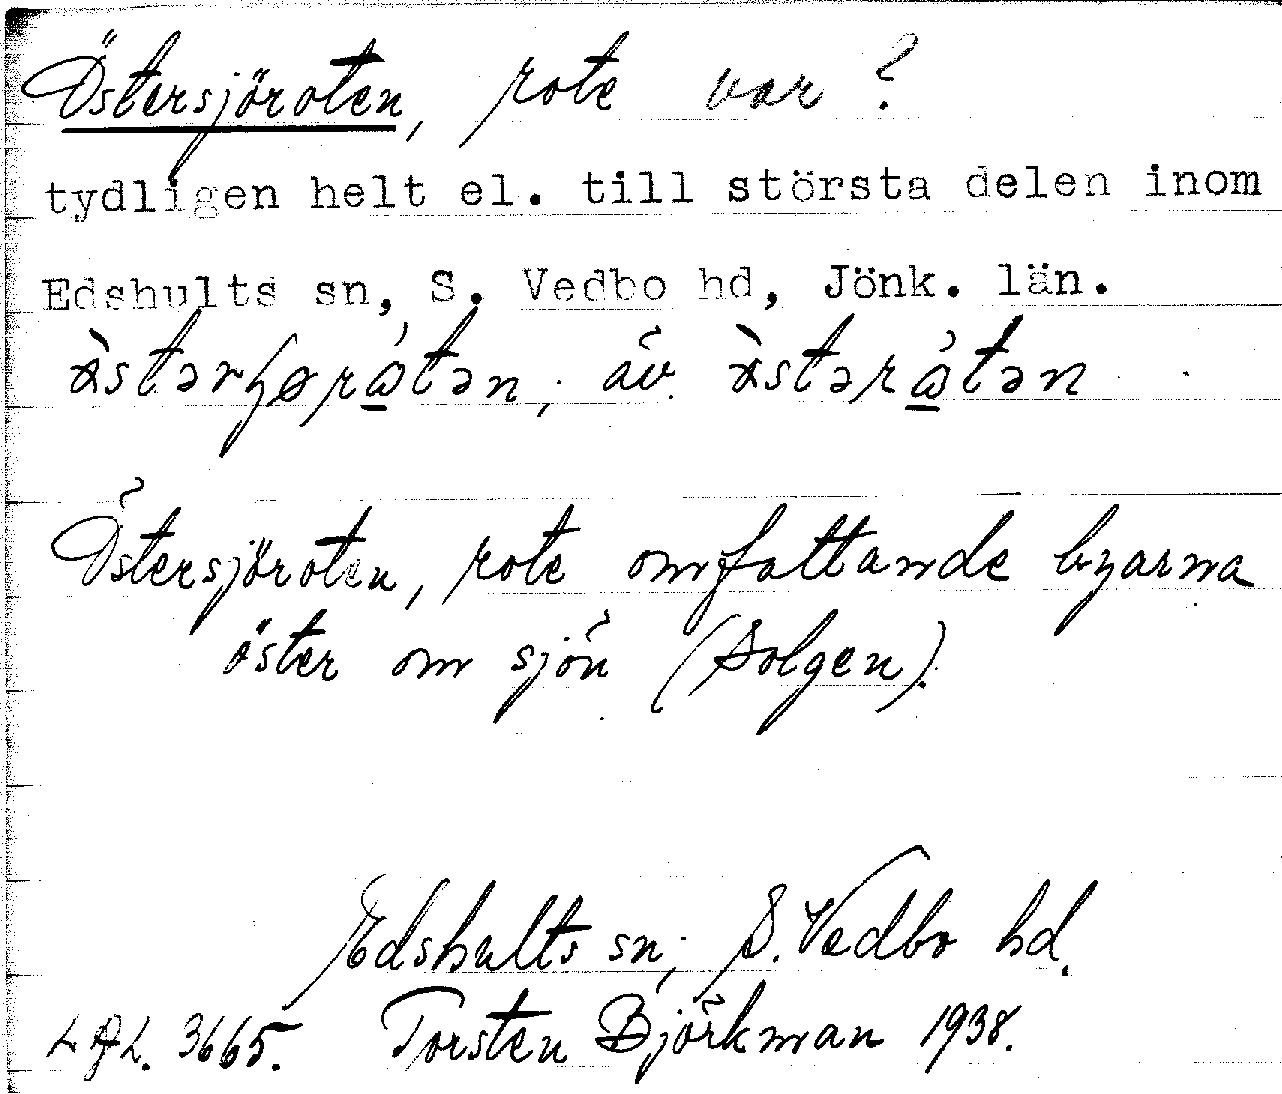 Östersjöroten, rote var?
tydligen helt el. till största delen inom
Edshults sn, S. Vedbo hd, Jönk. län.
äv.
Östersjöroten, rote omfattande byarna
öster om sjön (Solgen).
Edshults sn, S. Vedbo hd.
3665. Torsten Björkman 1938.